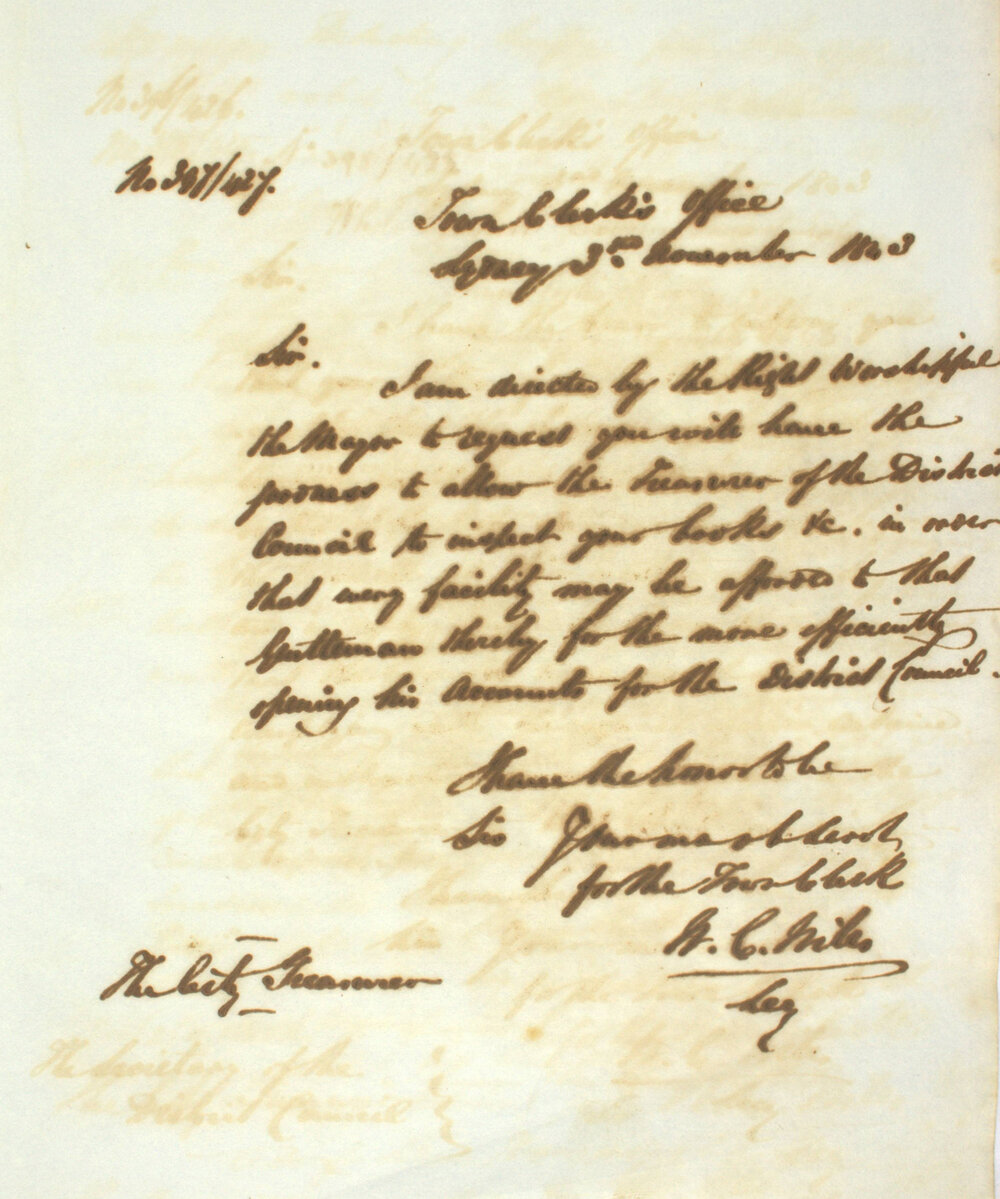 No 397/427.
Town Clerk's Office
Sydney 3rd November 1843
Sir.
I am directed by the Right Worshipful
the Mayor to request you will have the
goodness to allow the Treasurer of the District
Council to inspect your books &c. in order
that every facility may be afforded to that
Gentleman thereby for the more efficiently
opening his Accounts for the District Council.
I have the honor to be
Sir Your most obt Servt
for the Town Clerk
W. C. Wills
The City Treasurer
The Secretary of the
District Council